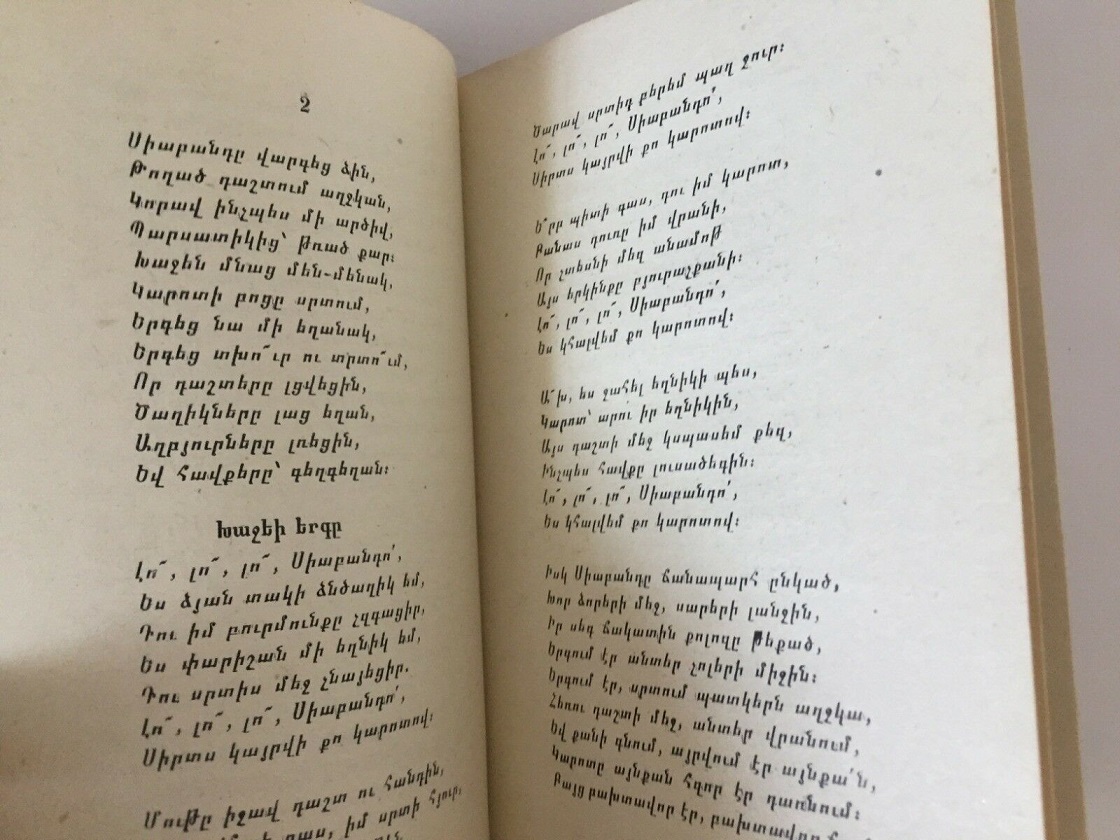 2
Սիաբանդը վարգեց ձին,
Թողած դաշտում աղջկան,
Կորավ ինչպես մի արծիվ,
Պարսատիկից՝ թռած քար։
Խաջեն մնաց մեն-մենակ,
Կարոտի բոցը սրտում,
Երգեց նա մի եղանակ,
Երգեց տխո՜ւր ու տրտո՜ւմ,
Որ դաշտերը լցվեցին,
Ծաղիկները լաց եղան,
Աղբյուրները լռեցին,
Եվ հավքերը՝ գեղգեղան։
Խաջեի երգը
Լո՜, լո՜, լո՜, Սիաբանդո՛,
Ես ձյան տակի ձնծաղիկ եմ,
Դու իմ բուրմունքը չզգացիր,
Ես փարիշան մի եղնիկ եմ,
Դու սրտիս մեջ չնայեցիր.
Լո՜, լո՜, լո՜, Սիաբանդո՛,
Սիրտս կայրվի քո կարոտով։
Մութը իջավ դաշտ ու հանդին,
գաս, իմ սրտի հյուր,
Ծարավ սրտիդ բերեմ պաղ ջուր։
Լո՜, լո՜, լո՜, Սիաբանդո՛,
Սիրտս կայրվի քո կարոտով։
Ե՞րբ պիտի գաս, դու իմ կարոտ,
Բանաս դուռը իմ վրանի,
Որ չտեսնի մեզ անամոթ
Այս երկինքը բյուրաչքանի։
Լո՜, լո՜, լո՜, Սիաբանդո՛,
Ես կհալվեմ քո կարոտով։
Ա՜խ, ես ջահել եղնիկի պես,
Կարոտ՝ արու իր եղնիկին,
Այս դաշտի մեջ կսպասեմ քեզ,
Ինչպես հավքը լուսածեգին։
Լո՜, լո՜, լո՜, Սիաբանդո՛,
Ես կհալվեմ քո կարոտով։
Իսկ Սիաբանդը ճանապարհ ընկած,
Խոր ձորերի մեջ, սարերի լանջին,
Իր սեգ ճակատին քոլոզը թեքած,
Երգում էր անտեր չոլերի միջին։
Երգում էր, սրտում պատկերն աղջկա,
Հեռու դաշտի մեջ, անտեր վրանում,
Եվ քանի գնում, այրվում էր այնքա՛ն,
Կարոտը այնքան հզոր էր դառնում։
Բայց բախտավոր էր, բախտավոր